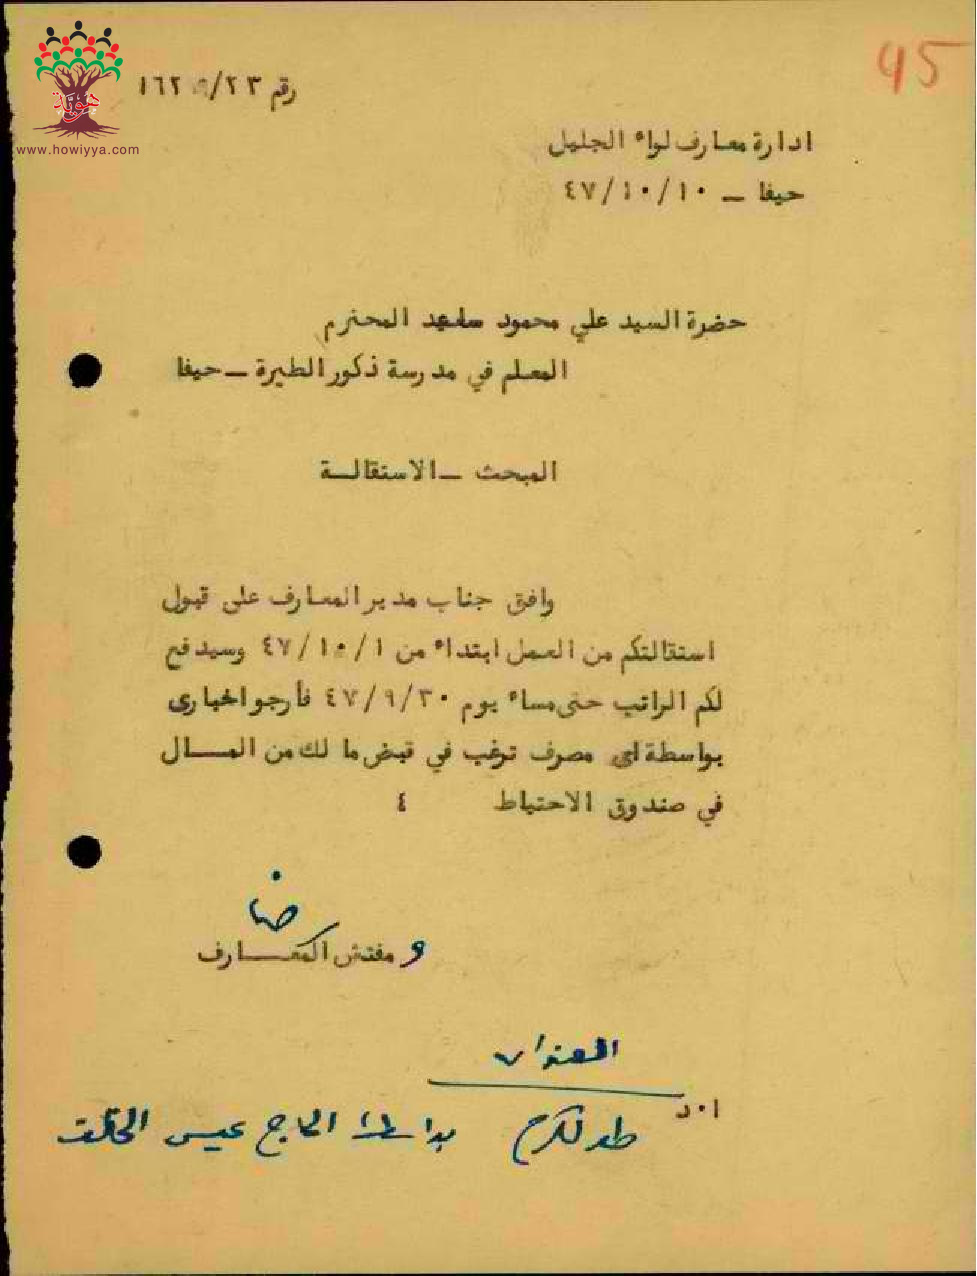 45
هوية
www.howiyya.com
رقم ١٦٢٥/٢٣
ادارة معارف لواء الجليل
حيفا – ٤٧/١٠/١٠
حضرة السيد علي محمود ساعد المحترم
المعلم في مدرسة ذكور الطيرة – حيفا
المبحث – الاستقالة
وافق جناب مدير المعارف على قبول
استقالتكم من العمل ابتداء من ٤٧/١٠/١ وسيدفع
لكم الراتب حتى مساء يوم ٤٧/٩/٣٠ فأرجو اخباري
بواسطة اى مصرف ترغب في قبض ما لك من المال
في صندوق الاحتياط ٤
و مفتش المعارف
العنوان
ا٠د
طولكرم بواسطة الحاج عيسى